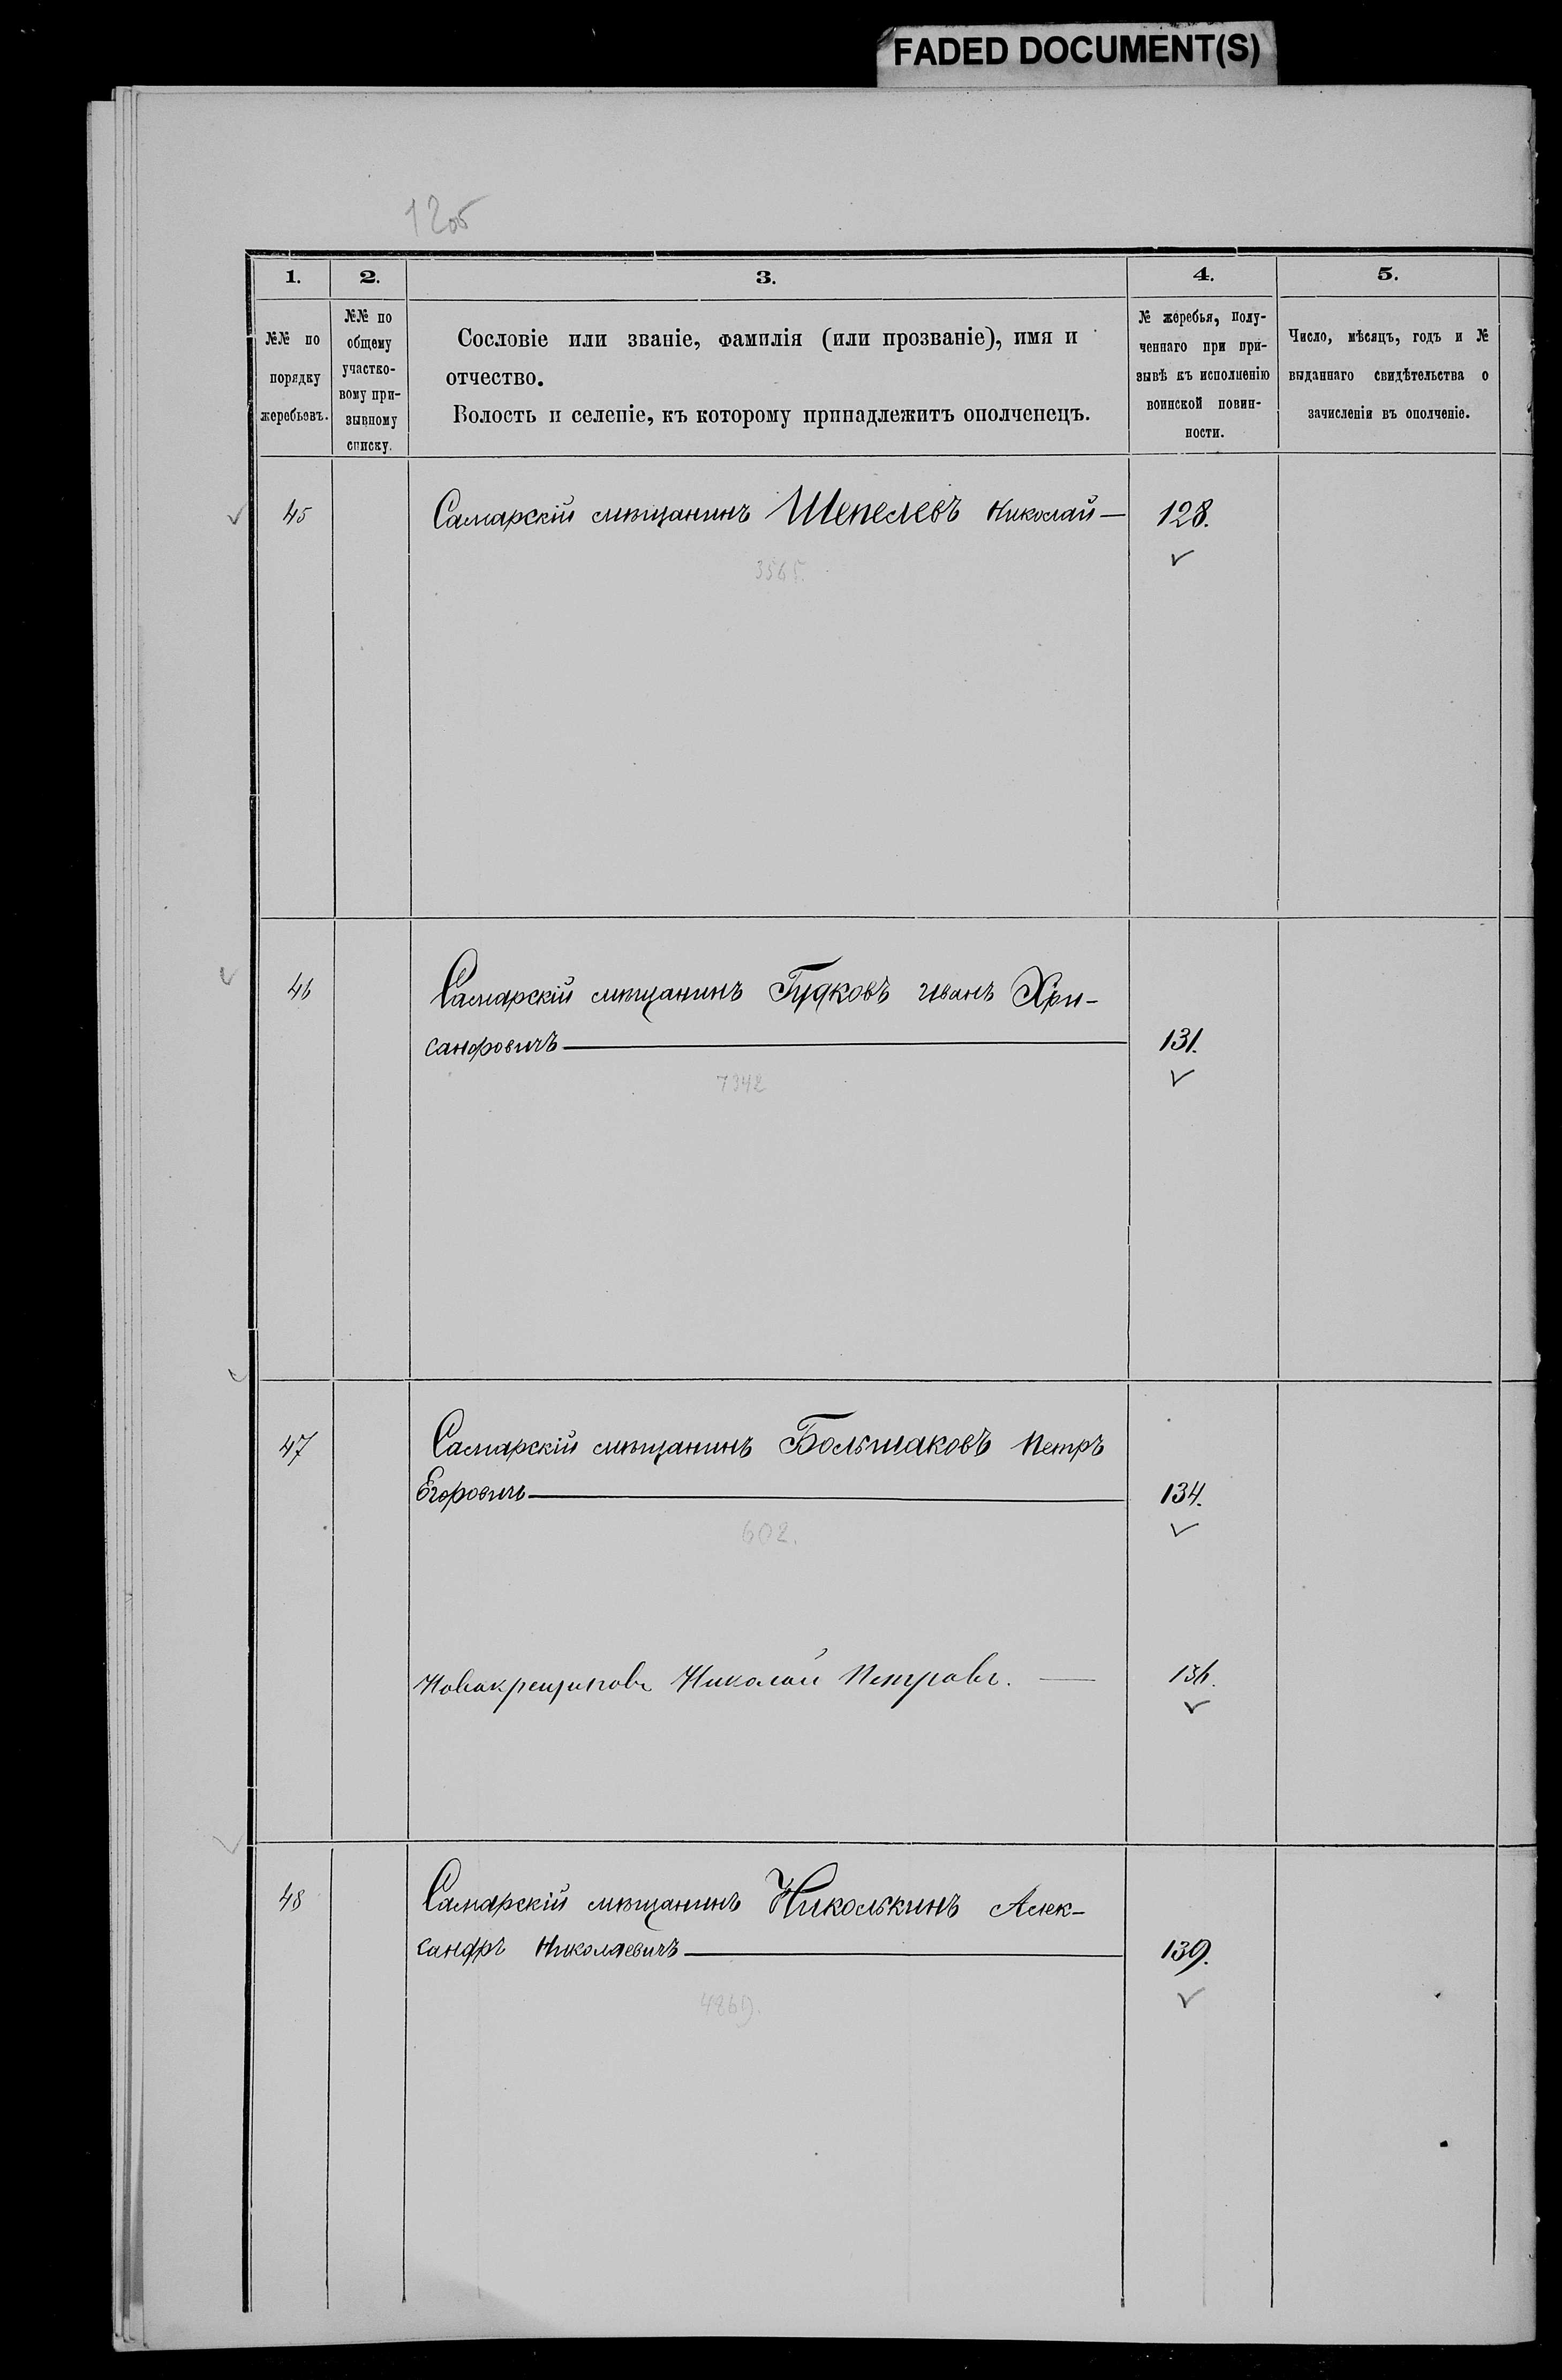 FADED DOCUMENT(S)
12об
1. 2. 3. 4. 5.
№№ по порядку жеребьевъ.
№№ по общему участковому призывному списку.
Сословіе или званіе, фамилія (или прозваніе), имя и
отчество.
Волость и селеніе, къ которому принадлежитъ ополченецъ.
№ жеребья, полу-
ченнаго при при-
зывѣ къ исполненію
воинской повин-
ности.
Число, мѣсяцъ, годъ и №
выданнаго свидѣтельства о
зачисленіи въ ополченіе.
45 Самарскій мѣщанинъ Шепелевъ Николай — 128.
3565.
46 Самарскій мѣщанинъ Гудковъ Иванъ Хри-
санфовичъ — 131.
7342
47 Самарскій мѣщанинъ Большаковъ Петръ
Егоровичъ — 134.
602.
Новокрещеновъ Николай Петровъ. — 136.
48 Самарскій мѣщанинъ Николькинъ Алек-
сандръ Николаевичъ — 139.
4869.